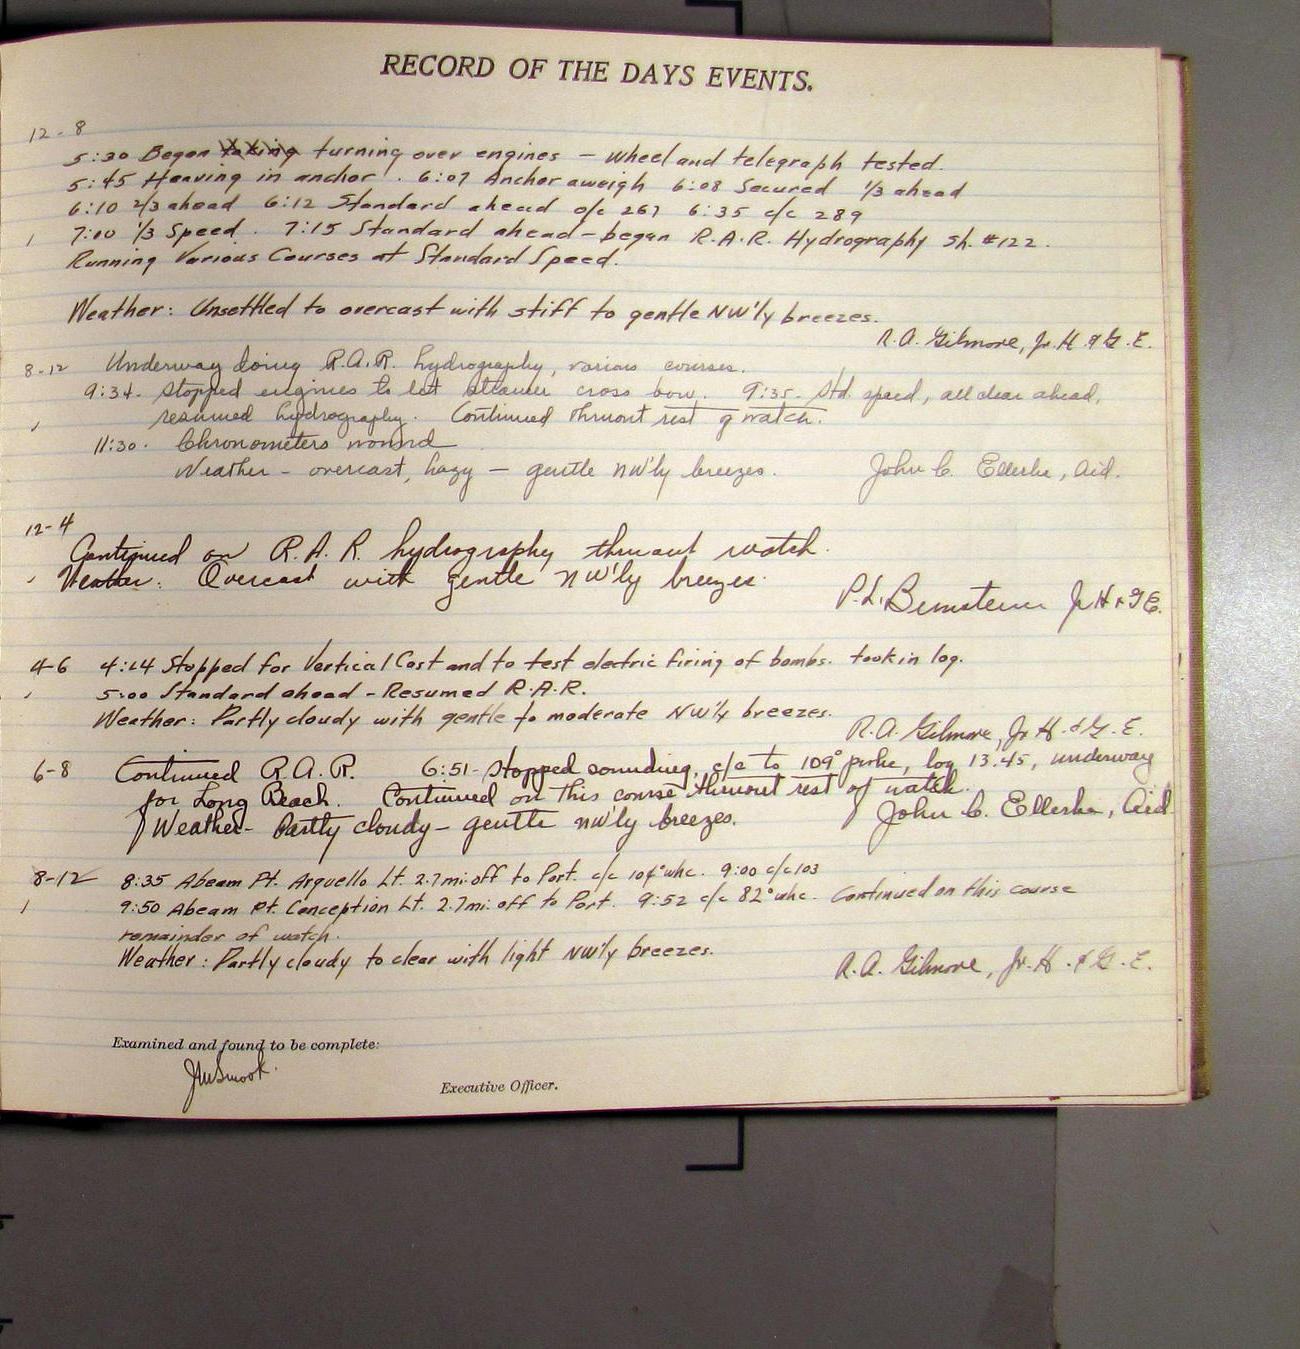 RECORD OF THE DAYS EVENTS.
12-8
5:30 Began taking turning over engines - wheel and telegraph tested.
5:45 Heaving in anchor. 6:07 Anchor aweigh 6:08 Secured 1/3 ahead
6:10 2/3 ahead 6:12 Standard ahead o/c 267 6:35 c/c 289
7:10 1/3 Speed. 7:15 Standard ahead - began R.A.R. Hydrography Sh. #122.
Running Various Courses at Standard Speed.
Weather: Unsettled to overcast with stiff to gentle NW'ly breezes.
R.A. Gilmore, Jr. H. & G. E.
8-12 Underway doing R.A.R. hydrography, various courses.
9:34. Stopped engines to let steamer cross bow. 9:35. Std. speed, all clear ahead,
resumed hydrography. Continued thruout rest of watch.
11:30. Chronometers wound
Weather - overcast, hazy - gentle NW'ly breezes. John C. Ellerbe, Aid.
12-4
Continued on R.A.R. hydrography thruout watch.
Weather: Overcast with gentle NW'ly breezes.
P.L. Bernstein Jr H & G E.
4-6 4:14 Stopped for Vertical Cast and to test electric firing of bombs. took in log.
5:00 Standard ahead - Resumed R.A.R.
Weather: Partly cloudy with gentle to moderate NW'ly breezes.
R.A. Gilmore, Jr H. & G. E.
6-8 Continued R.A.R. 6:51- Stopped sounding, c/c to 109° psc, log 13.45, underway
for Long Beach. Continued on this course thruout rest of watch.
Weather - Partly cloudy - gentle nw'ly breezes. John C. Ellerbe, Aid
8-12 8:35 Abeam Pt. Arguello Lt. 2.7 mi. off to Port. c/c 104° whc. 9:00 c/c 103
9:50 Abeam Pt. Conception Lt. 2.7 mi. off to Port. 9:52 c/c 82° whc. Continued on this course
remainder of watch.
Weather: Partly cloudy to clear with light NW'ly breezes.
R.A. Gilmore, Jr. H. & G. E.
Examined and found to be complete:
Executive Officer.